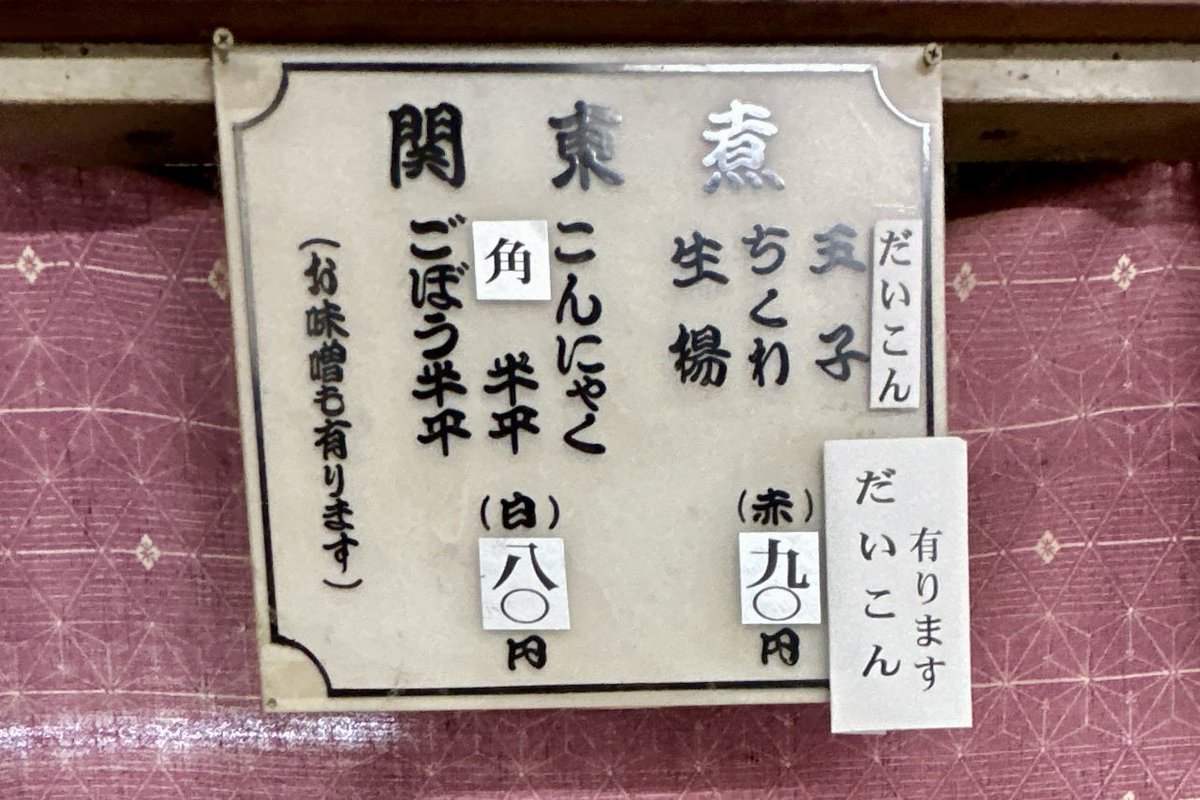 関東煮
だいこん
玉子
ちくわ
生揚
(赤)
九〇
円
こんにゃく
角半平
ごぼう半平
(白)
八〇
円
(お味噌も有ります)
有ります
だいこん